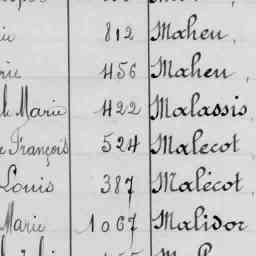 812 Maheu,
456 Maheu,
Marie 422 Malassis,
François 524 Malecot,
Louis 387 Malécot,
Marie 1067 Malidor